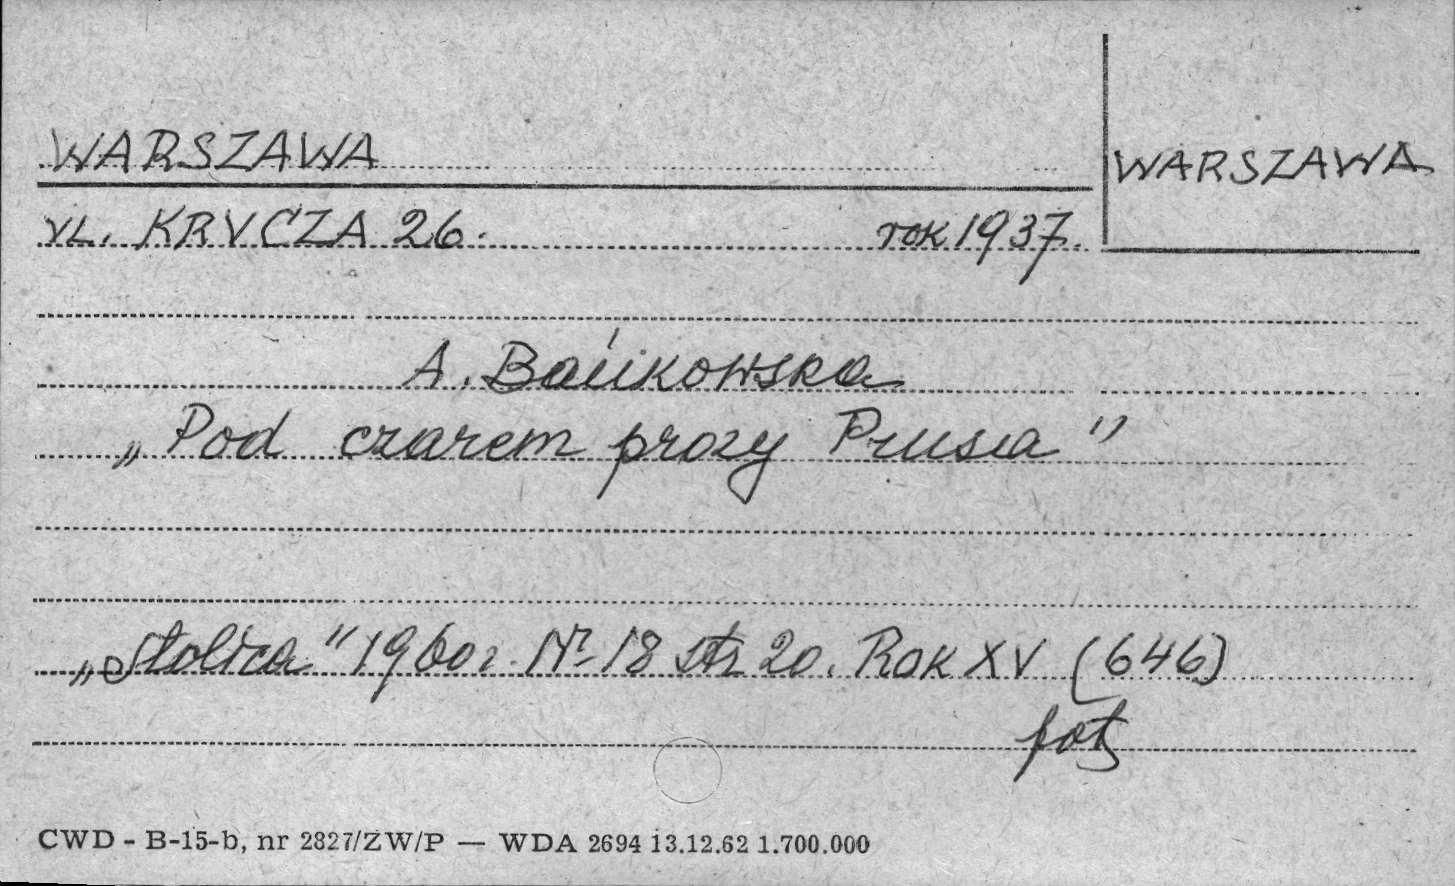 WARSZAWA
WARSZAWA
UL. KRUCZA 26. rok 1937.
A. Bańkowska
„Pod czarem prozy Prusa"
„Stolica" 1960 r. Nr 18 str 20. ROK XV (646)
fot
CWD - B-15-b, nr 2827/ZW/P — WDA 2694 13.12.62 1.700.000